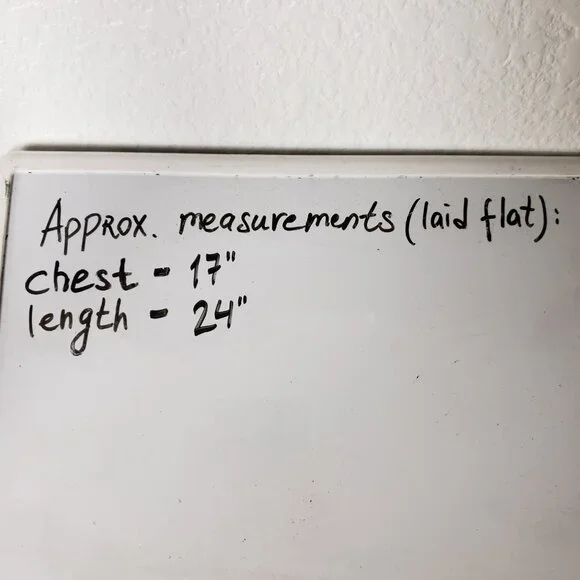 Approx. measurements (laid flat):
chest - 17"
length - 24"